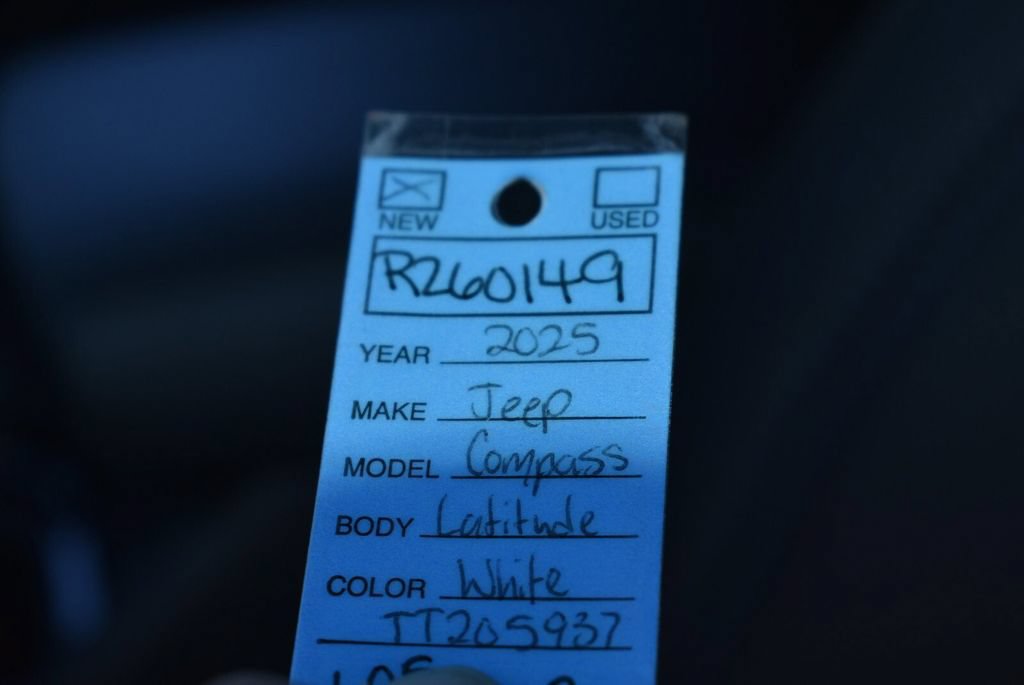 NEW USED
R260149
YEAR 2025
MAKE Jeep
MODEL Compass
BODY Latitude
COLOR White
TT205937